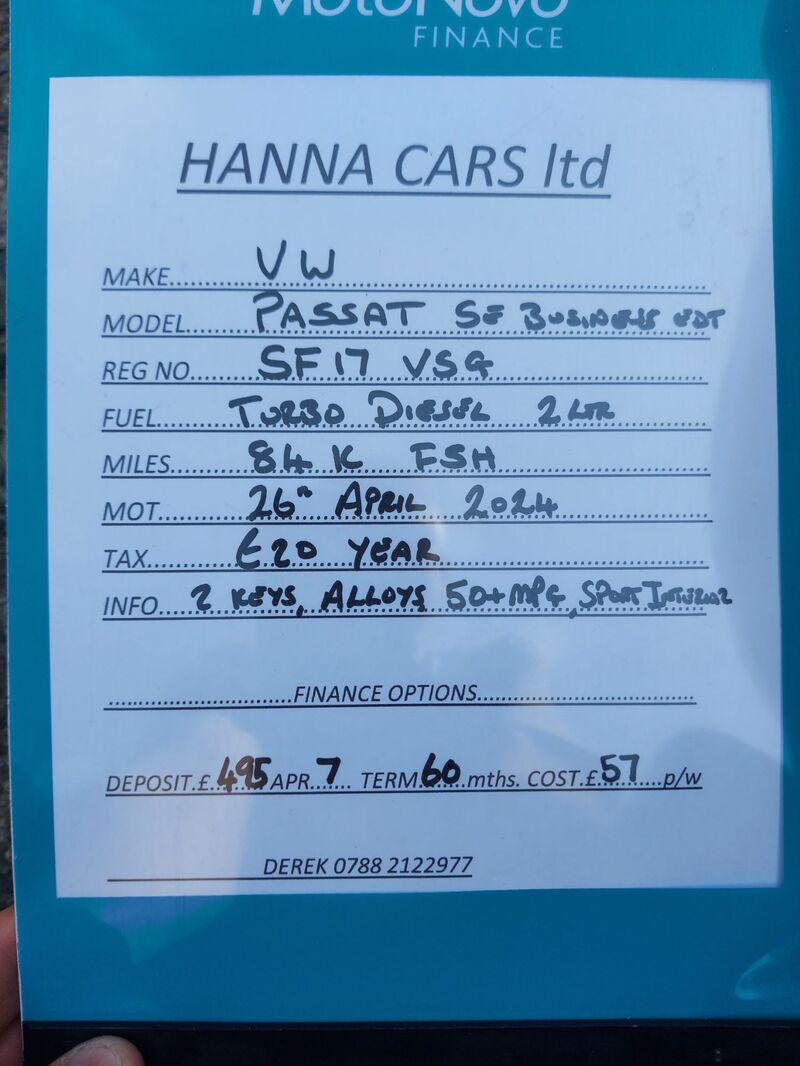 MotoNovo
FINANCE
HANNA CARS ltd
MAKE.......VW.......
MODEL.......PASSAT SE BUSINESS EDT
REG NO.......SF17 VSG.......
FUEL.......TURBO DIESEL 2 LTR.......
MILES.......84 K FSH.......
MOT.......26TH APRIL 2024.......
TAX.......£20 YEAR.......
INFO....2 KEYS, ALLOYS 50+MPG, SPORT INTERIOR
.......FINANCE OPTIONS.......
DEPOSIT.£.495 APR.7.... TERM.60.mths. COST.£.57....p/w
DEREK 0788 2122977